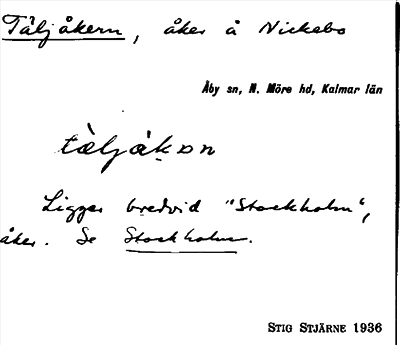 Täljåkern, åker å Nickebo
Åby sn, N. Möre hd, Kalmar län
tàljåkɔn
Ligger bredvid "Stockholm",
åker. Se Stockholm.
STIG STJÄRNE 1936